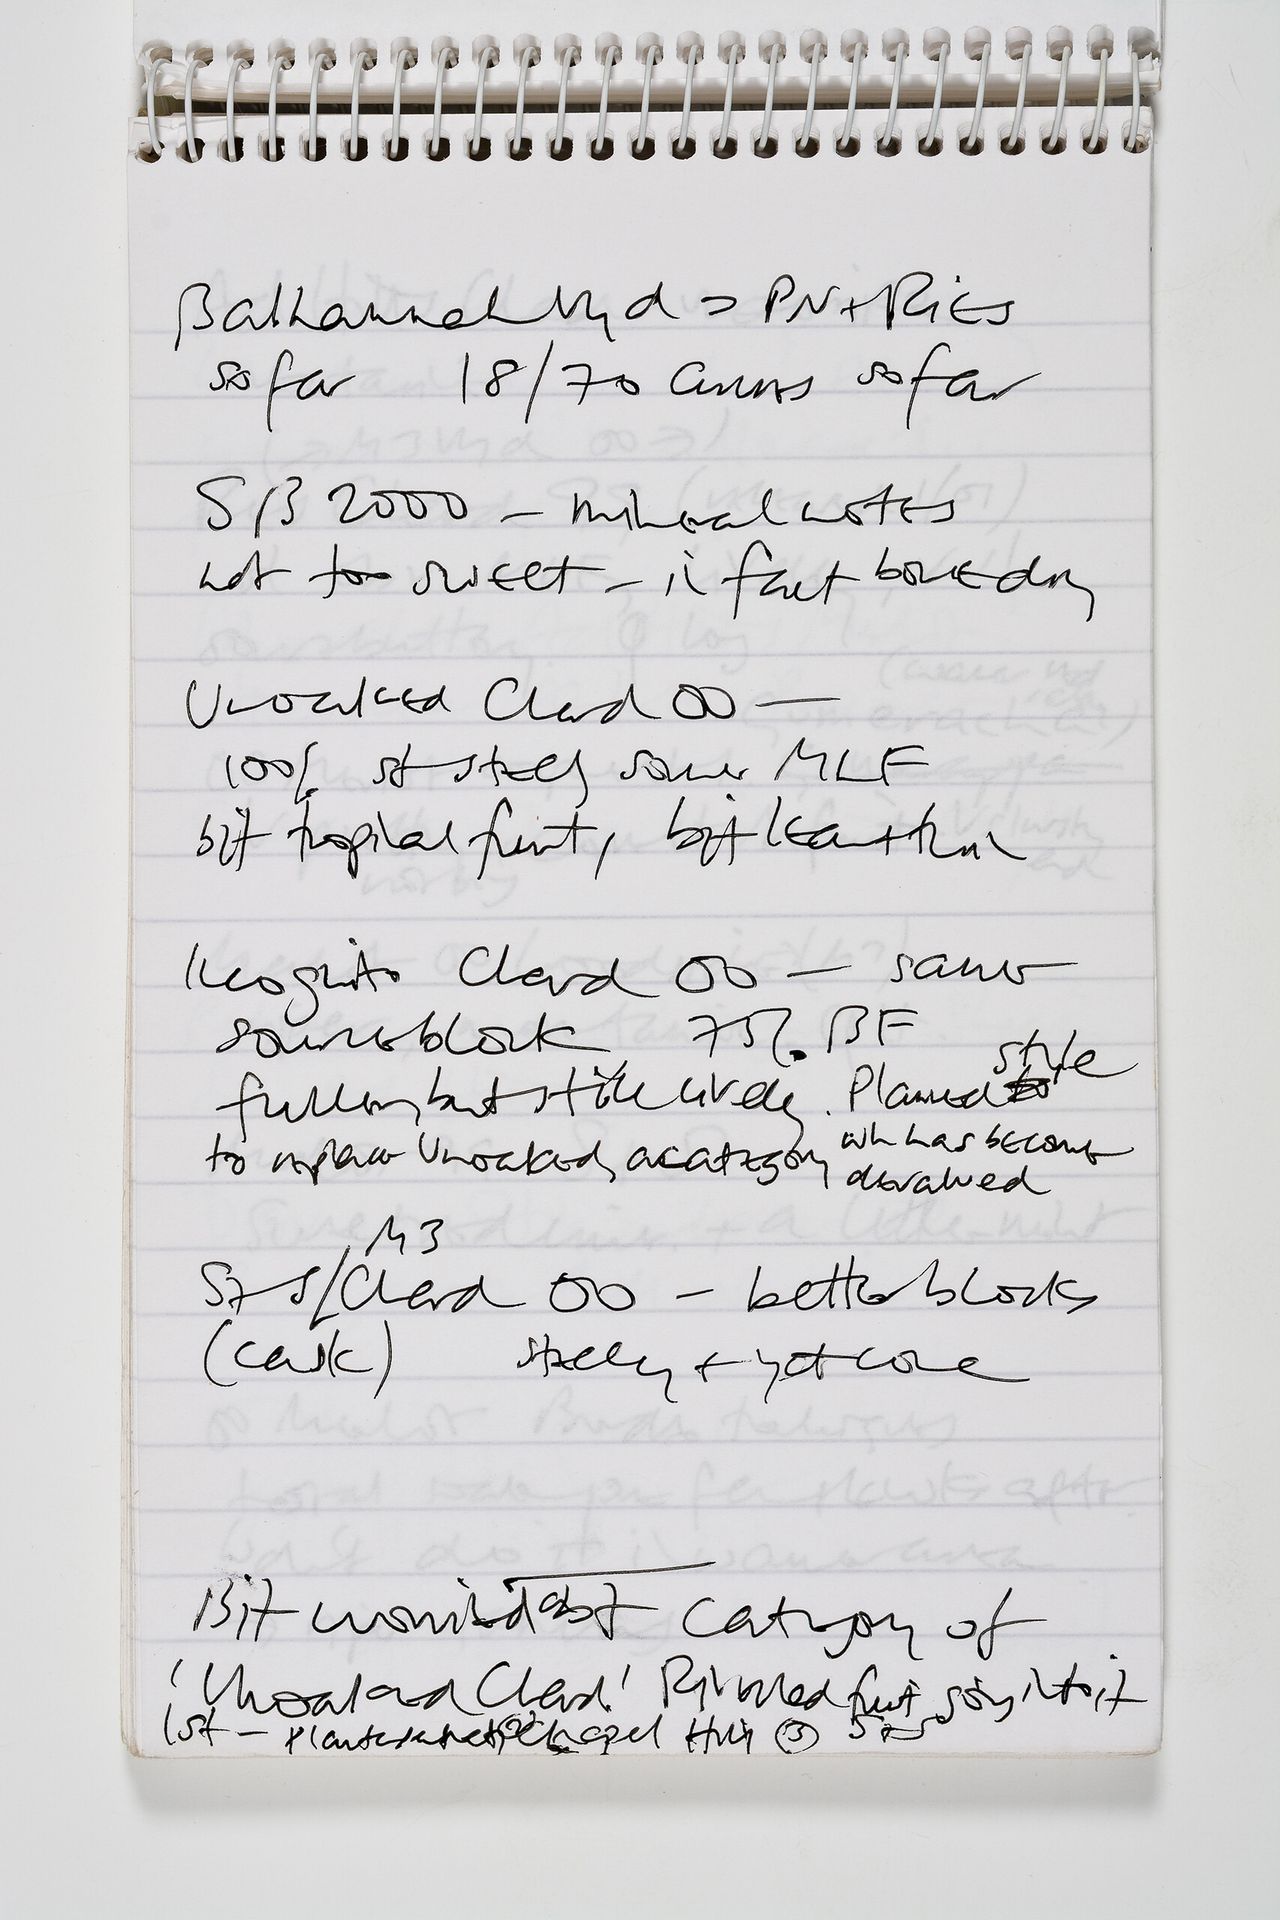 Balhannah Vyd > PN + Ries
so far 18/70 acres so far
SB 2000 – mineral notes
not too sweet – in fact bone dry
Unoaked Chard 00 —
100% st steel, some MLF
bit tropical fruit, bit lean + thin
Incognito Chard 00 — same
source block 75% BF
style
fuller, but still lively. Planned to
to replace Unoaked, a category wh has become
devalued
M3
S+S/Chard 00 – better blocks
(cask) steely + yet core
Bit worried abt category of
'Unoaked Chard' Riverland fruit going into it
1st – Chapel Hill ③ S+S